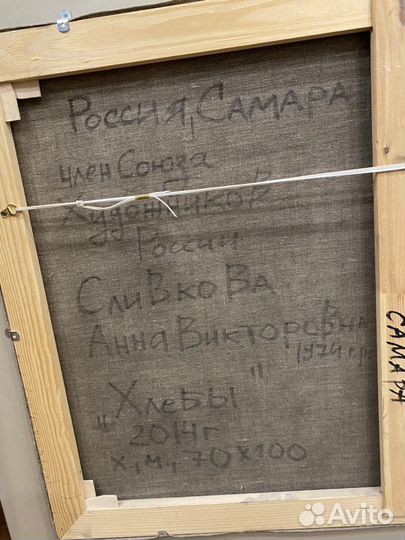 Россия, Самара
член Союза
Художников
России
Сливкова
Анна Викторовна
1974 г.р.
"Хлебы"
2014 г
х, м, 70х100
САМАРА
Avito